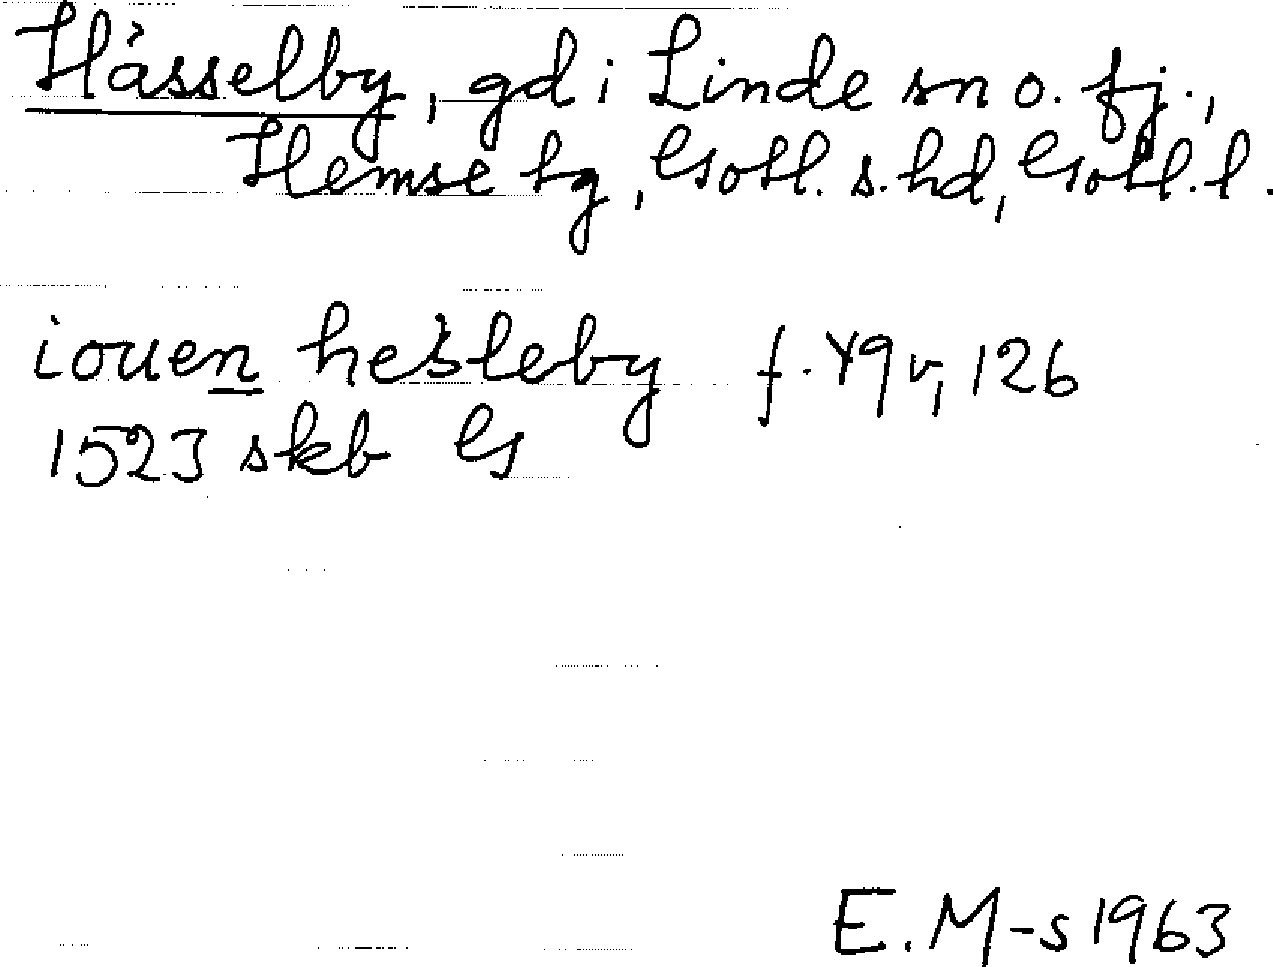 Hässelby, gd i Linde sn o. fj.,
Hemse tg, Gotl. s. hd, Gotl. l.
iouen hesleby f. 49 v, 126
1523 skb G
E. M-s 1963